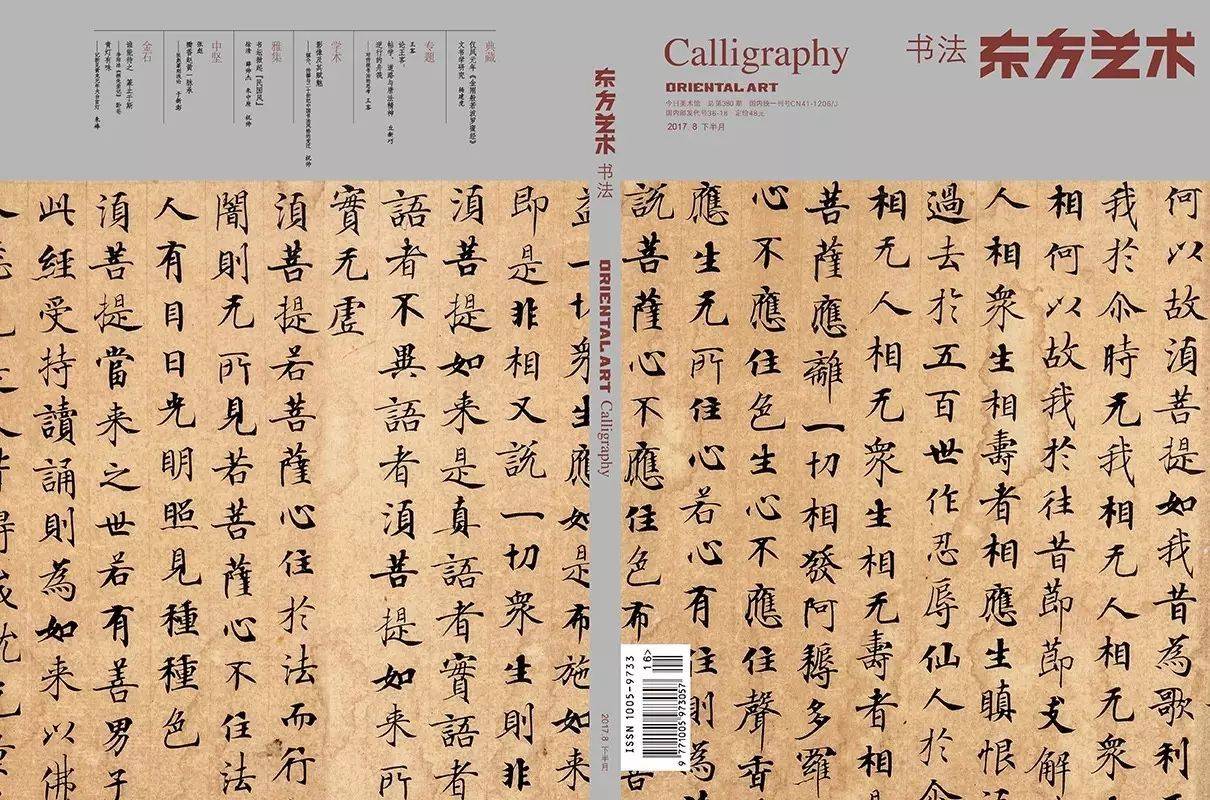 Calligraphy
ORIENTAL ART
书法 东方艺术
今日美术馆 总第380期 国内统一刊号CN41-1206/J
国内邮发代号36-18 定价48元
2017.8 下半月
何以故湏菩提如我昔為歌利
我於尒時无我相无人相无衆
相何以故我於往昔莭莭支解
人相衆生相壽者相應生瞋恨
過去於五百世作忍辱仙人於尒
相无人相无衆生相无壽者相
菩薩應離一切相發阿耨多羅
心不應住色生心不應住聲香
應生无所住心若心有住則為
說菩薩心不應住色布
菩
ISSN 1005-9733
16>
9 771005 973057
东方艺术 书法
ORIENTAL ART Calligraphy
2017.8 下半月
典藏
仪凤元年《金刚般若波罗蜜经》
文书学研究 杨建虎
专题
王客
论王客
帖学、道路与唐法精神 丘新巧
逆行的舟筏
——对传统书法的思考 王客
学术
影像及其赋魅
——媒介、传播与二十世纪中国书法风格的变迁 祝帅
雅集
书坛掀起“民国风”
徐清 薛帅杰 朱中原 祝帅
中坚
张彪
赵黄一脉承
金石
谁能待之 篆止于斯
青灯有味
朱峰
益一切衆生應如是布施如来
即是非相又說一切衆生則非
湏菩提如来是真語者實語者
語者不異語者湏菩提如来所
實无虗
湏菩提若菩薩心住於法而行
闇則无所見若菩薩心不住法
人有目日光明照見種種色
湏菩提當来之世若有善男子
此經受持讀誦則為如来以佛